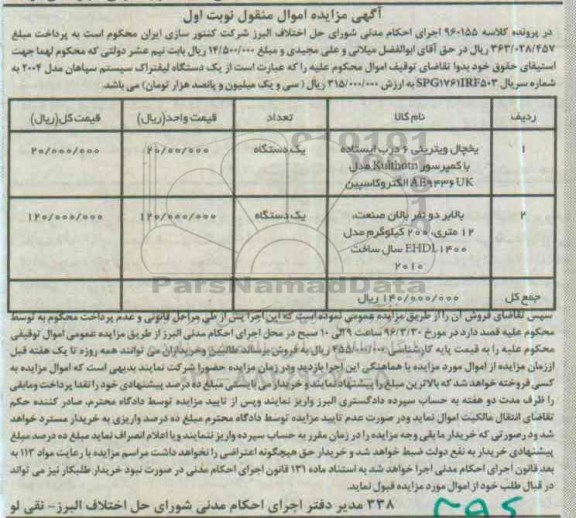 آگهی مزایده اموال منقول نوبت اول
در پرونده کلاسه ۹۶۰۱۵۵ اجرای احکام مدنی شورای حل اختلاف البرز شرکت کنتور سازی ایران محکوم است به پرداخت مبلغ
۳۶۳/۰۲۸/۴۵۷ ریال در حق آقای ابوالفضل میلانی و علی مجیدی و مبلغ ۱۴/۵۰۰/۰۰۰ ریال بابت نیم عشر دولتی که محکوم لهما جهت
استیفای حقوق خود بدوا تقاضای توقیف اموال محکوم علیه را که عبارت است از یک دستگاه لیفتراک سیستم سپاهان مدل ۲۰۰۴ به
شماره سریال SPG۱۷۶۱IRF۵۰۳ به ارزش ۳۱۵/۰۰۰/۰۰۰ ریال ( سی و یک میلیون و پانصد هزار تومان) می باشد.
ردیف نام کالا تعداد قیمت واحد(ریال) قیمت کل(ریال)
۱ یخچال ویترینی ۶ درب ایستاده یک دستگاه ۲۰/۰۰/۰۰۰ ۲۰/۰۰۰/۰۰۰
با کمپرسور Kulthotn مدل
AE۹۴۳۶UK الکتروکاسپین
۲ بالابر دو نفر بالان صنعت، یک دستگاه ۱۲۰/۰۰۰/۰۰۰ ۱۲۰/۰۰۰/۰۰۰
۱۲ متری، ۲۰۰ کیلوگرم مدل
EHDL۱۴۰۰ سال ساخت
۲۰۱۰
جمع کل ۱۴۰/۰۰۰/۰۰۰ ریال
ParsNamadData
سپس تقاضای فروش آن را از طریق مزایده عمومی نموده است که این اجرا پس از طی مراحل قانونی و عدم پرداخت محکوم به توسط
محکوم علیه قصد دارد در مورخ ۹۶/۳/۳۰ ساعت ۹ الی ۱۰ صبح در محل اجرای احکام مدنی البرز از طریق مزایده عمومی اموال توقیفی
محکوم علیه را به قیمت پایه کارشناسی ریال به فروش برساند طالبین وخریداران می توانند همه روزه تا یک هفته قبل
اززمان مزایده از اموال مورد مزایده با هماهنگی این اجرا بازدید ودر زمان مزایده حضورا شرکت نمایند بدیهی است که اموال مزایده به
کسی فروخته خواهد شد که بالاترین مبلغ را پیشنهاد نمایند و خریدار می بایستی مبلغ ده درصد پیشنهادی خود را نقدا پرداخت ومابقی
را ظرف مدت دو هفته به حساب سپرده دادگستری البرز واریز نمایند وپس از تایید مزایده توسط دادگاه محترم، صادر کننده حکم
تقاضای انتقال مالکیت اموال نماید ودر صورت عدم تایید مزایده توسط دادگاه محترم مبلغ ده درصد واریزی به خریدار مسترد خواهد
شد ودرصورتی که خریدار ما بقی وجه مزایده را در زمان مقرر به حساب سپرده واریز ننمایند ویا اعلام انصراف نماید مبلغ ده درصد مبلغ
پیشنهادی خریدار به نفع دولت ضبط خواهد شد و خریدار حق هیچگونه اعتراضی را نخواهد داشت مراسم مزایده با رعایت مواد ۱۱۳ به
بعد قانون اجرای احکام مدنی اجرا خواهد شد به استناد ماده ۱۳۱ قانون اجرای احکام مدنی در صورت نبود خریدار طلبکار نیز می تواند
در قبال طلب خود از اموال مورد مزایده قبول نماید.
۳۳۸ مدیر دفتر اجرای احکام مدنی شورای حل اختلاف البرز- نقی لو